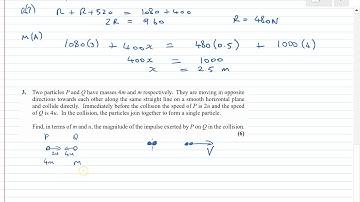 R(↑) R + R + 520 = 1080 + 400
2R = 960 R = 480N
M(A) 1080(3) + 400x = 480(0.5) + 1000(4)
400x = 1000
x = 2.5 m
3. Two particles P and Q have masses 4m and m respectively. They are moving in opposite
directions towards each other along the same straight line on a smooth horizontal plane
and collide directly. Immediately before the collision the speed of P is 2u and the speed
of Q is 4u. In the collision, the particles join together to form a single particle.
Find, in terms of m and u, the magnitude of the impulse exerted by P on Q in the collision.
(6)
P Q
2u 4u
4m m
V